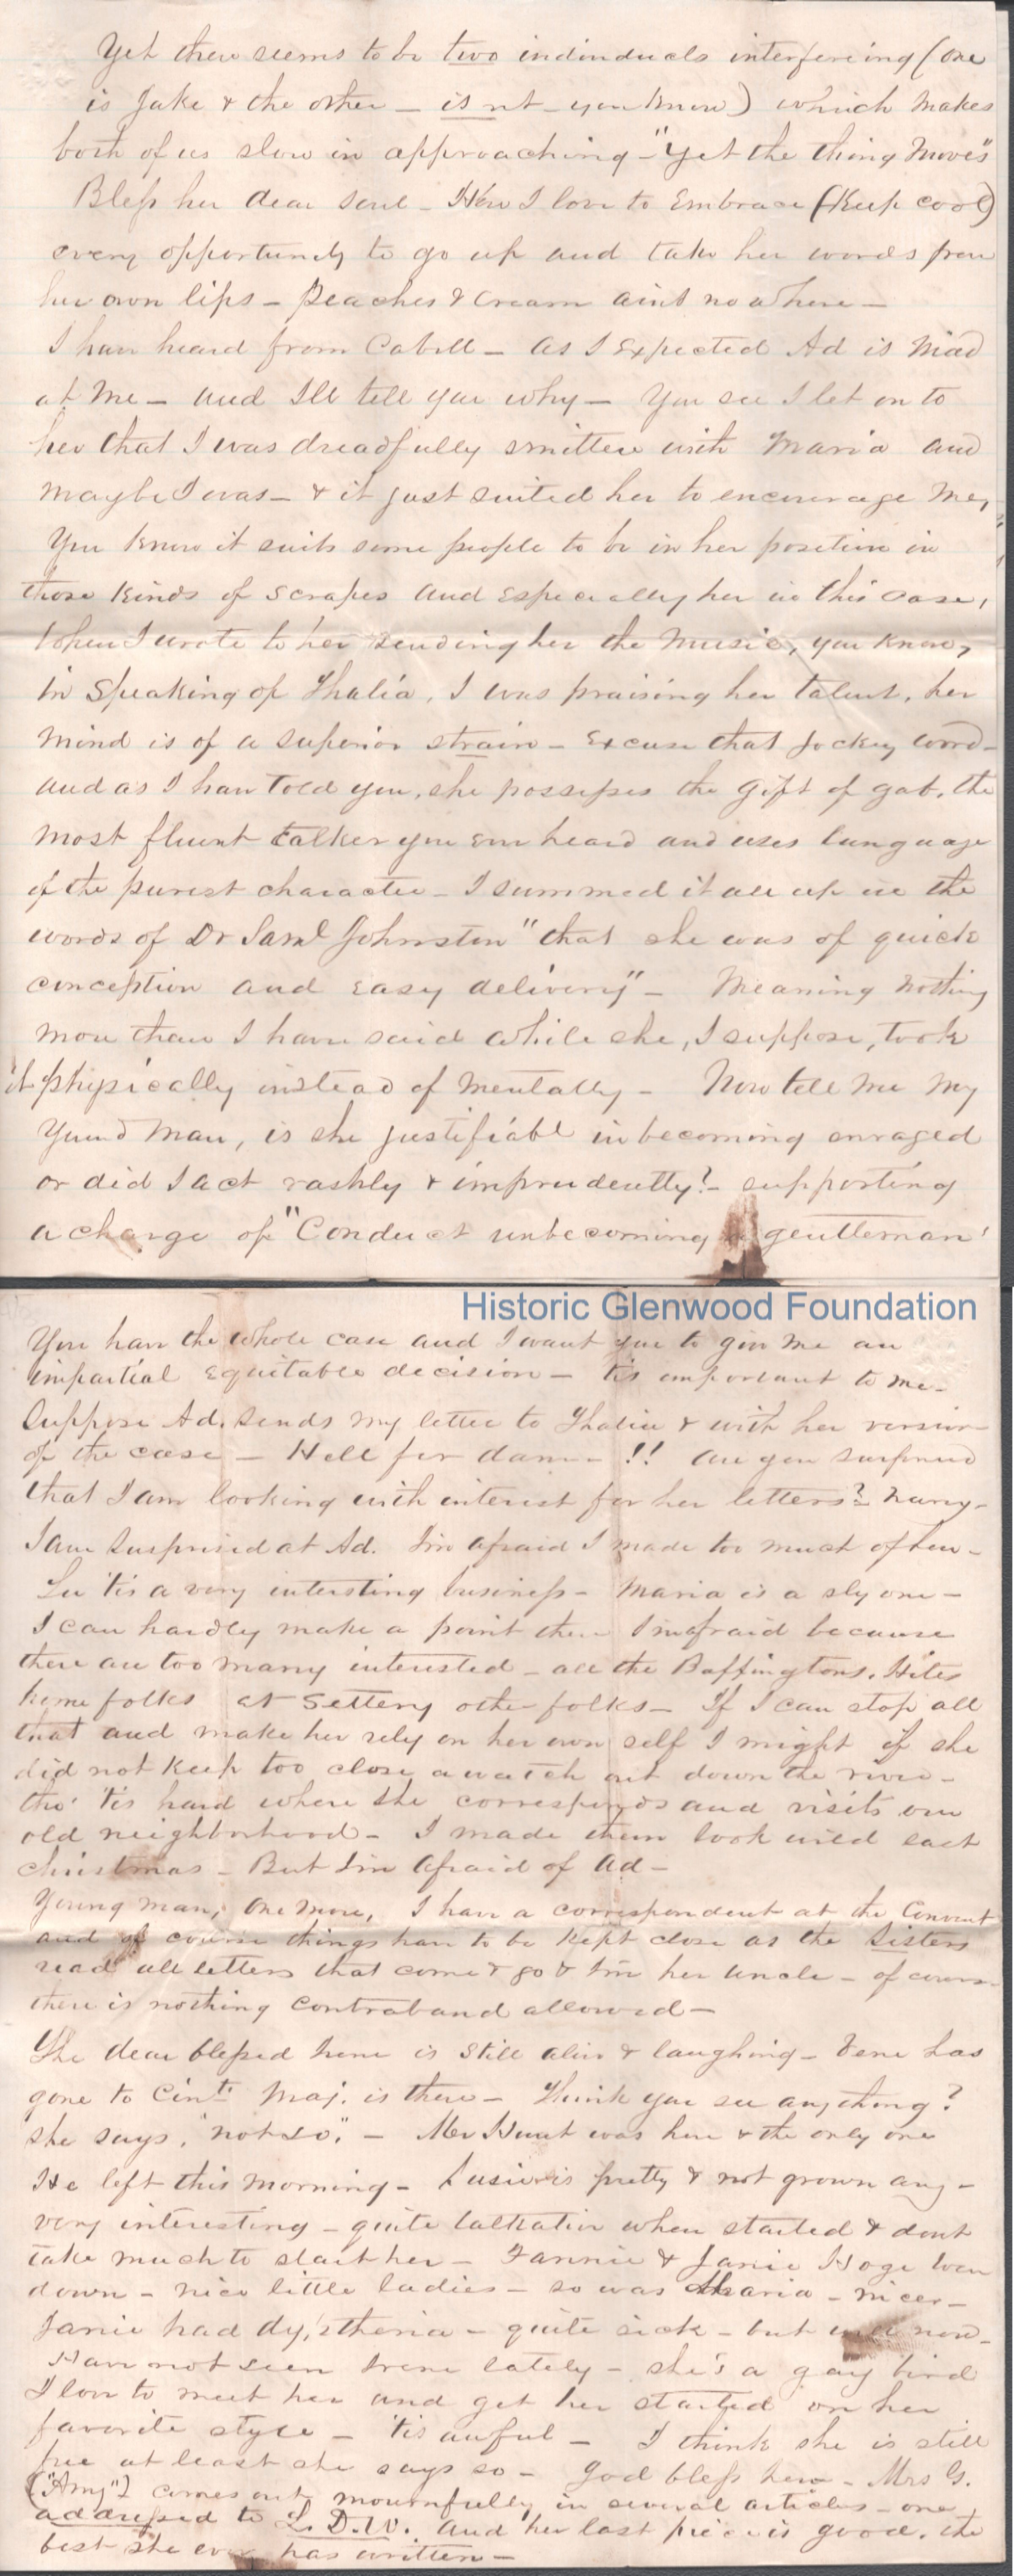 Yet there seems to be two individuals interfering (one
is Jake & the other — is not — you know) which makes
both of us slow in approaching — "Yet the thing moves"
Bless her dear soul — How I love to Embrace (Keep cool)
every opportunity to go up and take her words from
her own lips — Peaches & cream aint no where —
I have heard from Cabell — as I Expected Ad is mad
at me — and I'll tell you why — You see I let on to
her that I was dreadfully smitten with Maria and
maybe I was — & it just suited her to encourage me,
You know it suits some people to be in her position in
those kinds of scrapes and especially her in this case,
When I wrote to her sending her the music, you know,
in speaking of Thalia, I was praising her talent, her
mind is of a superior strain — Excuse that jockey word —
and as I have told you, she possesses the gift of gab, the
most fluent talker you ever heard and uses language
of the purest character — I summed it all up in the
words of Dr Saml Johnston "that she was of quick
conception and easy delivery" — Meaning nothing
more than I have said while she, I suppose, took
it physically instead of mentally — Now tell me my
Young man, is she justifiabl in becoming enraged
or did I act rashly & imprudently? — supporting
a charge of "Conduct unbecoming a gentleman'
Historic Glenwood Foundation
You have the whole case and I want you to give me an
impartial equitable decision — tis important to me —
Suppose Ad. sends my letter to Thalia & with her version
of the case — Hell fer damn — !! are you surprised
that I am looking with interest for her letters? nary —
I am surprised at Ad. I'm afraid I made too much of her —
Lu 'tis a very intersting business — Maria is a sly one —
I can hardly make a point there I'm afraid because
there are too many interested — all the Buffingtons, Hites
home folks at Settery other folks — If I can stop all
that and make her rely on her own self I might if she
did not keep too close a watch out down the river —
tho' 'tis hard where she corresponds and visits our
old neighborhood — I made them look wild last
christmas — But I'm afraid of Ad —
Young man, one more, I have a correspondent at the Convent
and of course things have to be kept close as the Sisters
read all letters that come & go & I'm her Uncle — of course
there is nothing contraband allowed —
The dear blessed Irene is still alive & laughing — Vene has
gone to Cinti Maj. is there — Think you see anything?
she says, "not so," — Mr Hunt was here & the only one
He left this morning — Lusie is pretty & not grown any —
very interesting — quite talkative when started & dont
take much to start her — Fannie & Janie Hoge were
down — nice little ladies — so was Maria — nicer —
Janie had dyptheria — quite sick — but well now —
Have not seen Irene lately — she's a gay bird
I love to meet her and get her started on her
favorite style — 'tis awful — I think she is still
free at least she says so — God bless her — Mrs G.
("Amy") comes out mournfully in several articles — one
addressed to L. D. W. and her last piece is good, the
best she ever has written —